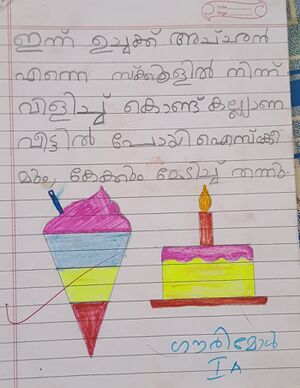 ഇന്ന് ഉച്ചക്ക് അച്ഛൻ
എന്നെ സ്ക്കൂളിൽ നിന്ന്
വിളിച്ച് കൊണ്ട് കല്ല്യാണ
വീട്ടിൽ പോയി ഐസ്ക്രീ
മും കേക്കും മേടിച്ച് തന്നു.
ഗൗരിമോൾ
I A